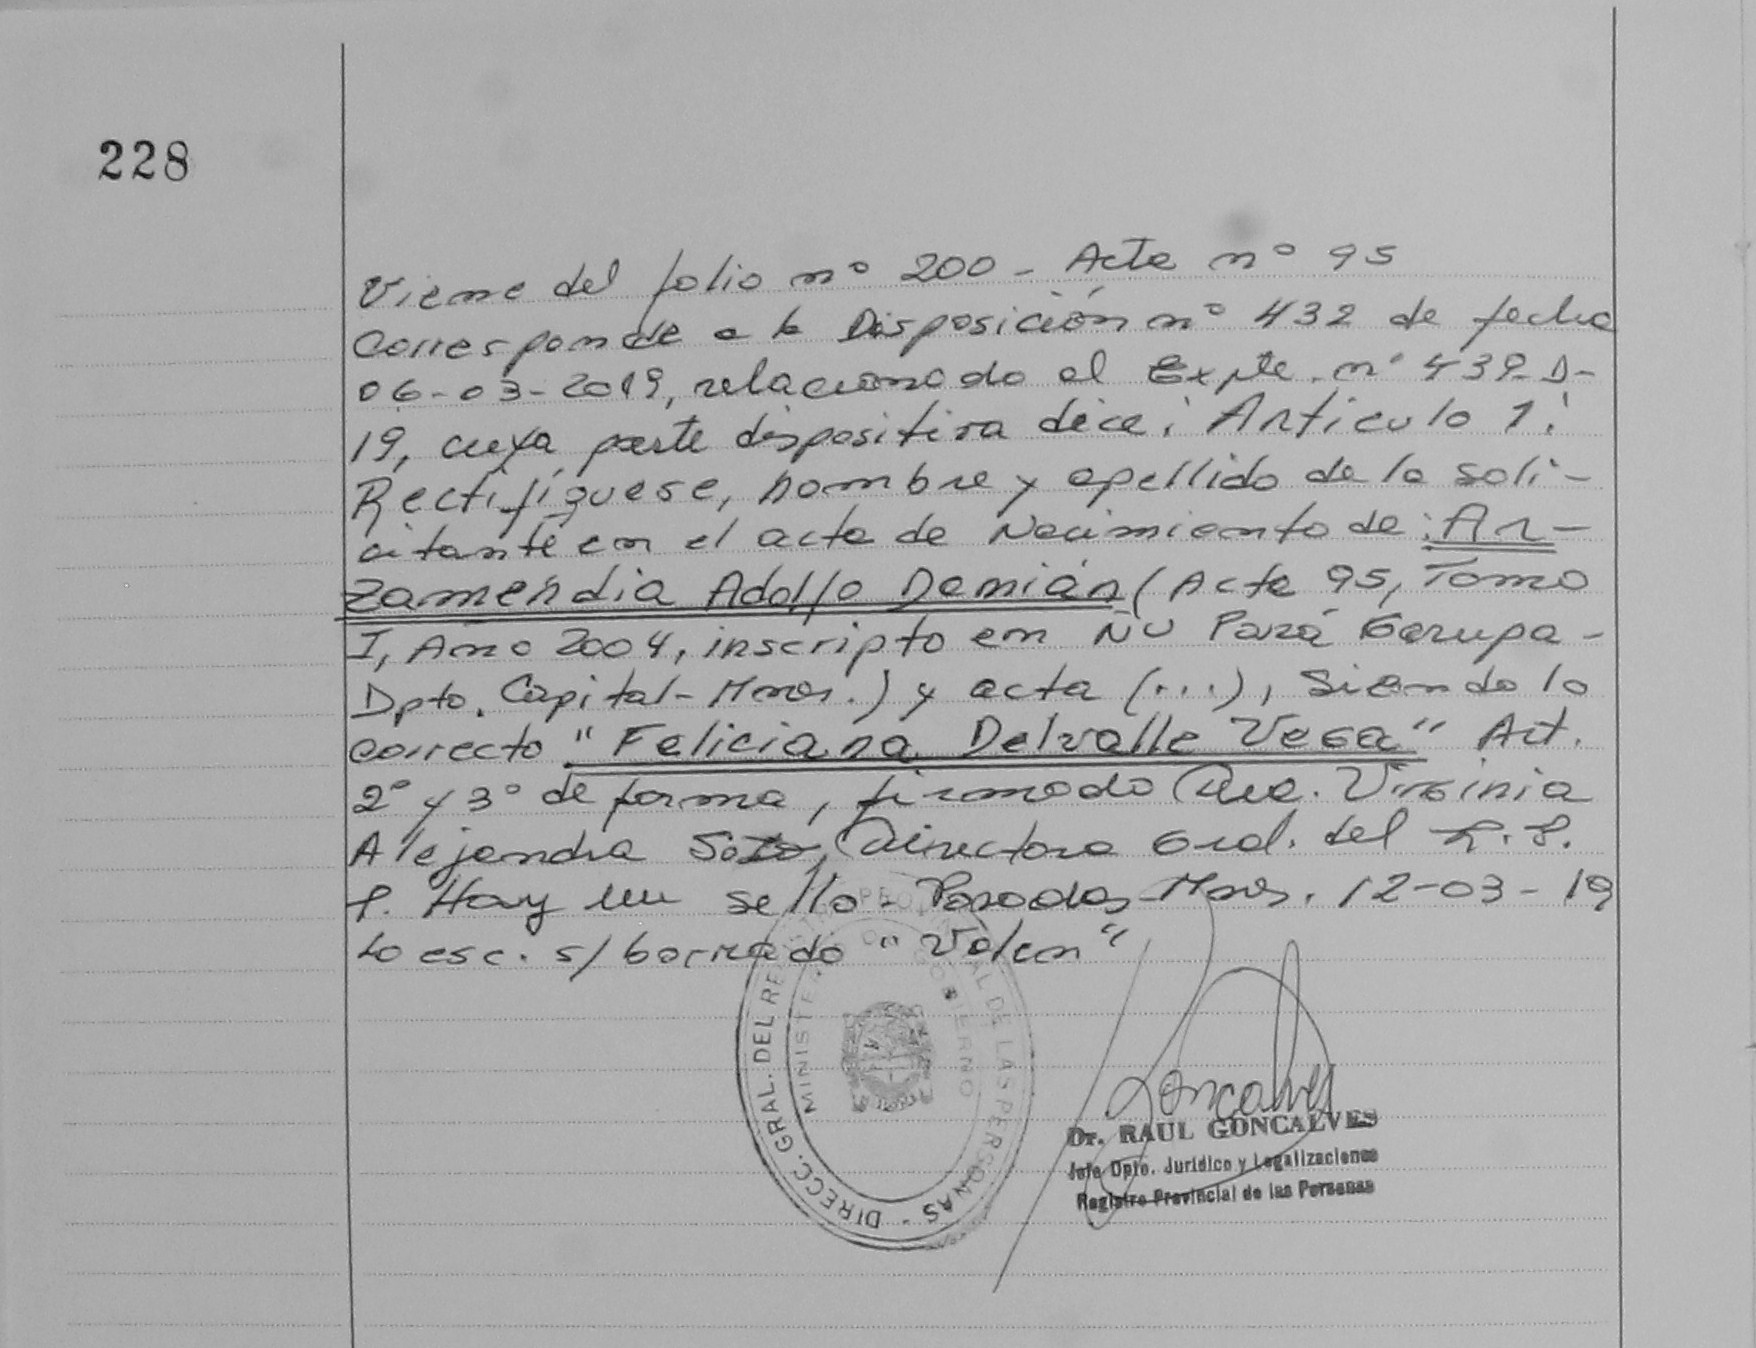 228
Viene del folio nº 200 - Acta nº 95
Corresponde a la Disposición nº 432 de fecha
06-03-2019, relacionado al Expte. nº 439-D-
19, cuya parte dispositiva dice: Artículo 1:
Rectifíquese, nombre y apellido de la soli-
citante en el acta de Nacimiento de: Ar-
zamendia Adolfo Demián (Acta 95, Tomo
I, Año 2004, inscripto en Ñu Pará Garupa-
Dpto. Capital - Mnes.) y acta (...), Siendo lo
correcto "Feliciana Delvalle Vega" Art.
2º y 3º de forma, firmado Dra. Virginia
Alejandra Soto, Directora Gral. del R.P.
P. Hay un sello - Posadas Mnes. 12-03-19
Lo esc. s/ borrado "Valen"
DIRECC. GRAL. DEL REGISTRO PROVINCIAL DE LAS PERSONAS -
MINISTERIO DE GOBIERNO
Goncalves
Dr. RAUL GONCALVES
Jefe Dpto. Jurídico y Legalizaciones
Registro Provincial de las Personas